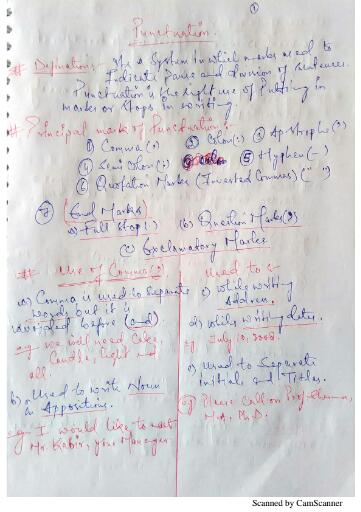 ①
Punctuation.
# Definition:- It is a System in which marks used to
Indicate Pause and division of sentences.
Punctuation is the right use of Putting in
marks or Stops in writing.
# Principal marks of Punctuation:-
① Comma(,) ② Colon(:) ③ Apostrophe(')
④ Semi Colon(;) ⑤ Hyphen(-)
⑥ Quotation Marks (Inverted Commas) (" ")
⑦ (End Marks)
a) Full Stop(.) (b) Question Marks(?)
(c) Exclamatory Marks
# Use of Comma(,)
a) Comma is used to Separate
words but it is
avoided before (and)
e.g. we will need Cake,
Candle, light and
all.
b) Used to write Noun
in Apposition.
e.g. I would like to meet
Mr. Kabir, your Manager
Used to :-
c) while writing
Address.
d) while writing dates.
eg July 10, 2008.
e) used to Separate
initials and Titles.
eg Please call on Prof. Sharma,
M.A, Ph.D.
Scanned by CamScanner